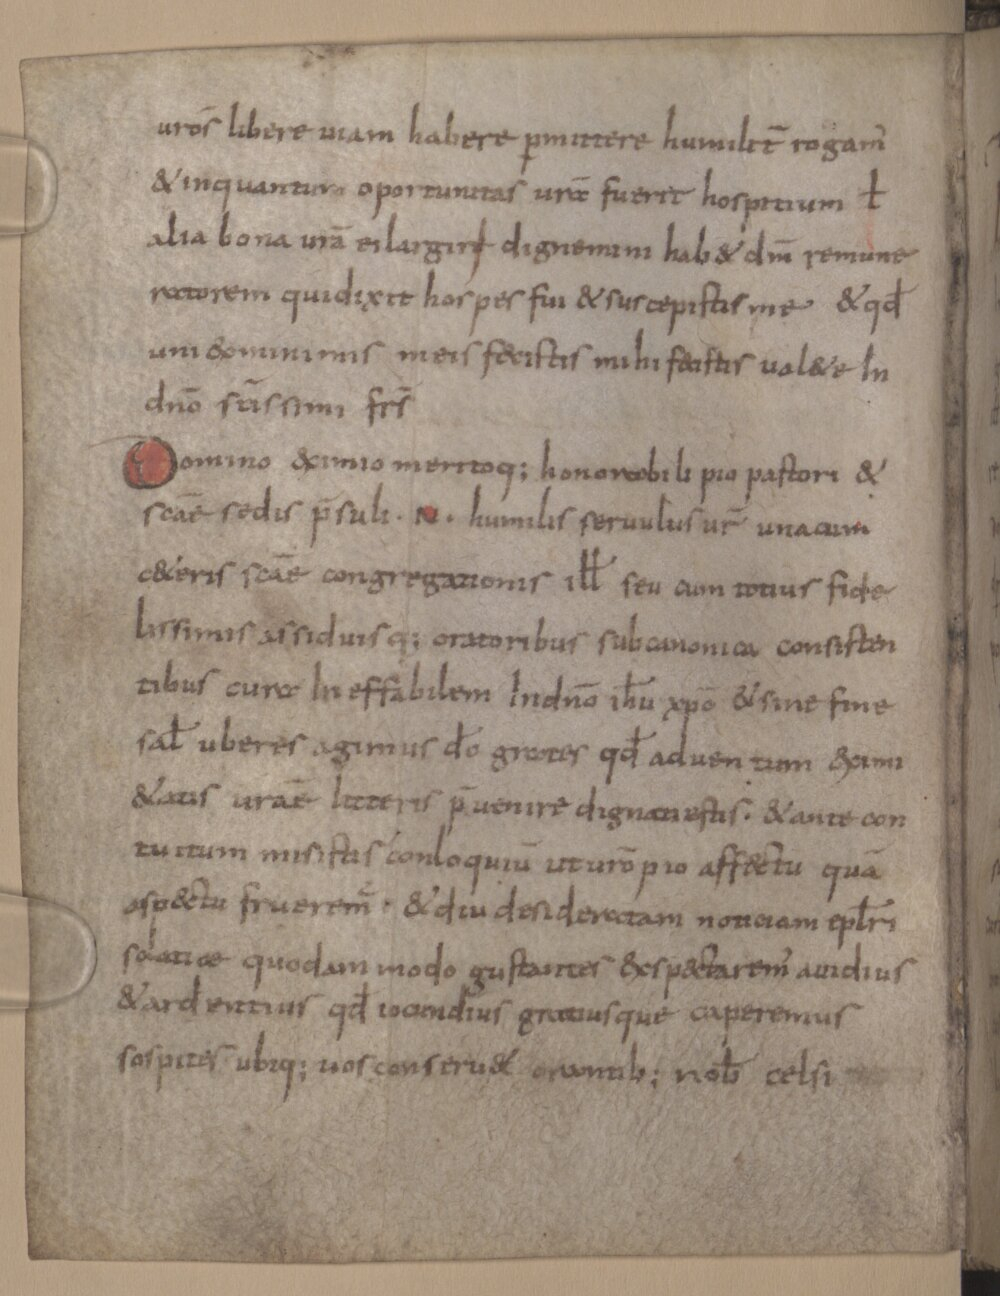 uros̄ libere uiam habere ꝑmittere humilit̄ rogam̄
& inquantum oportunitas urae fuerit hospitium ł
alia bona urā ei largiri dignemini hab& dm̄ remune
ratorem qui dixit hospes fui & suscepistis me & qd̄
uni de minimis meis fecistis mihi fecistis ual&e In
dn̄o sc̄issimi frs̄
Domino eximio meritoq; honorabili pio pastori &
sc̄ae sedis p̄suli · N · humilis seruulus ur̄ unacum
c&eris sc̄ae congregationis ill̄ seu cum totius fide
lissimis assiduisq; oratoribus sub canonica consisten
tibus cura Ineffabilem In dn̄o ih̄u xp̄o & sine fine
sal̄ uberes agimus dō grates qd̄ aduentum eximi
&atis urae litteris p̄uenire dignati estis · & ante con
tuitum misistis conloquiū ut urō pio affectu quā
aspectu frueremr̄ · & diu desideratam notitiam epl̄ri
solatiae quodammodo gustantes exspectarem̄ auidius
& ardentius qd̄ iocundius gratiusque caperemus
sospites ubiq; uos conseru& orantib; nob̄ celsi